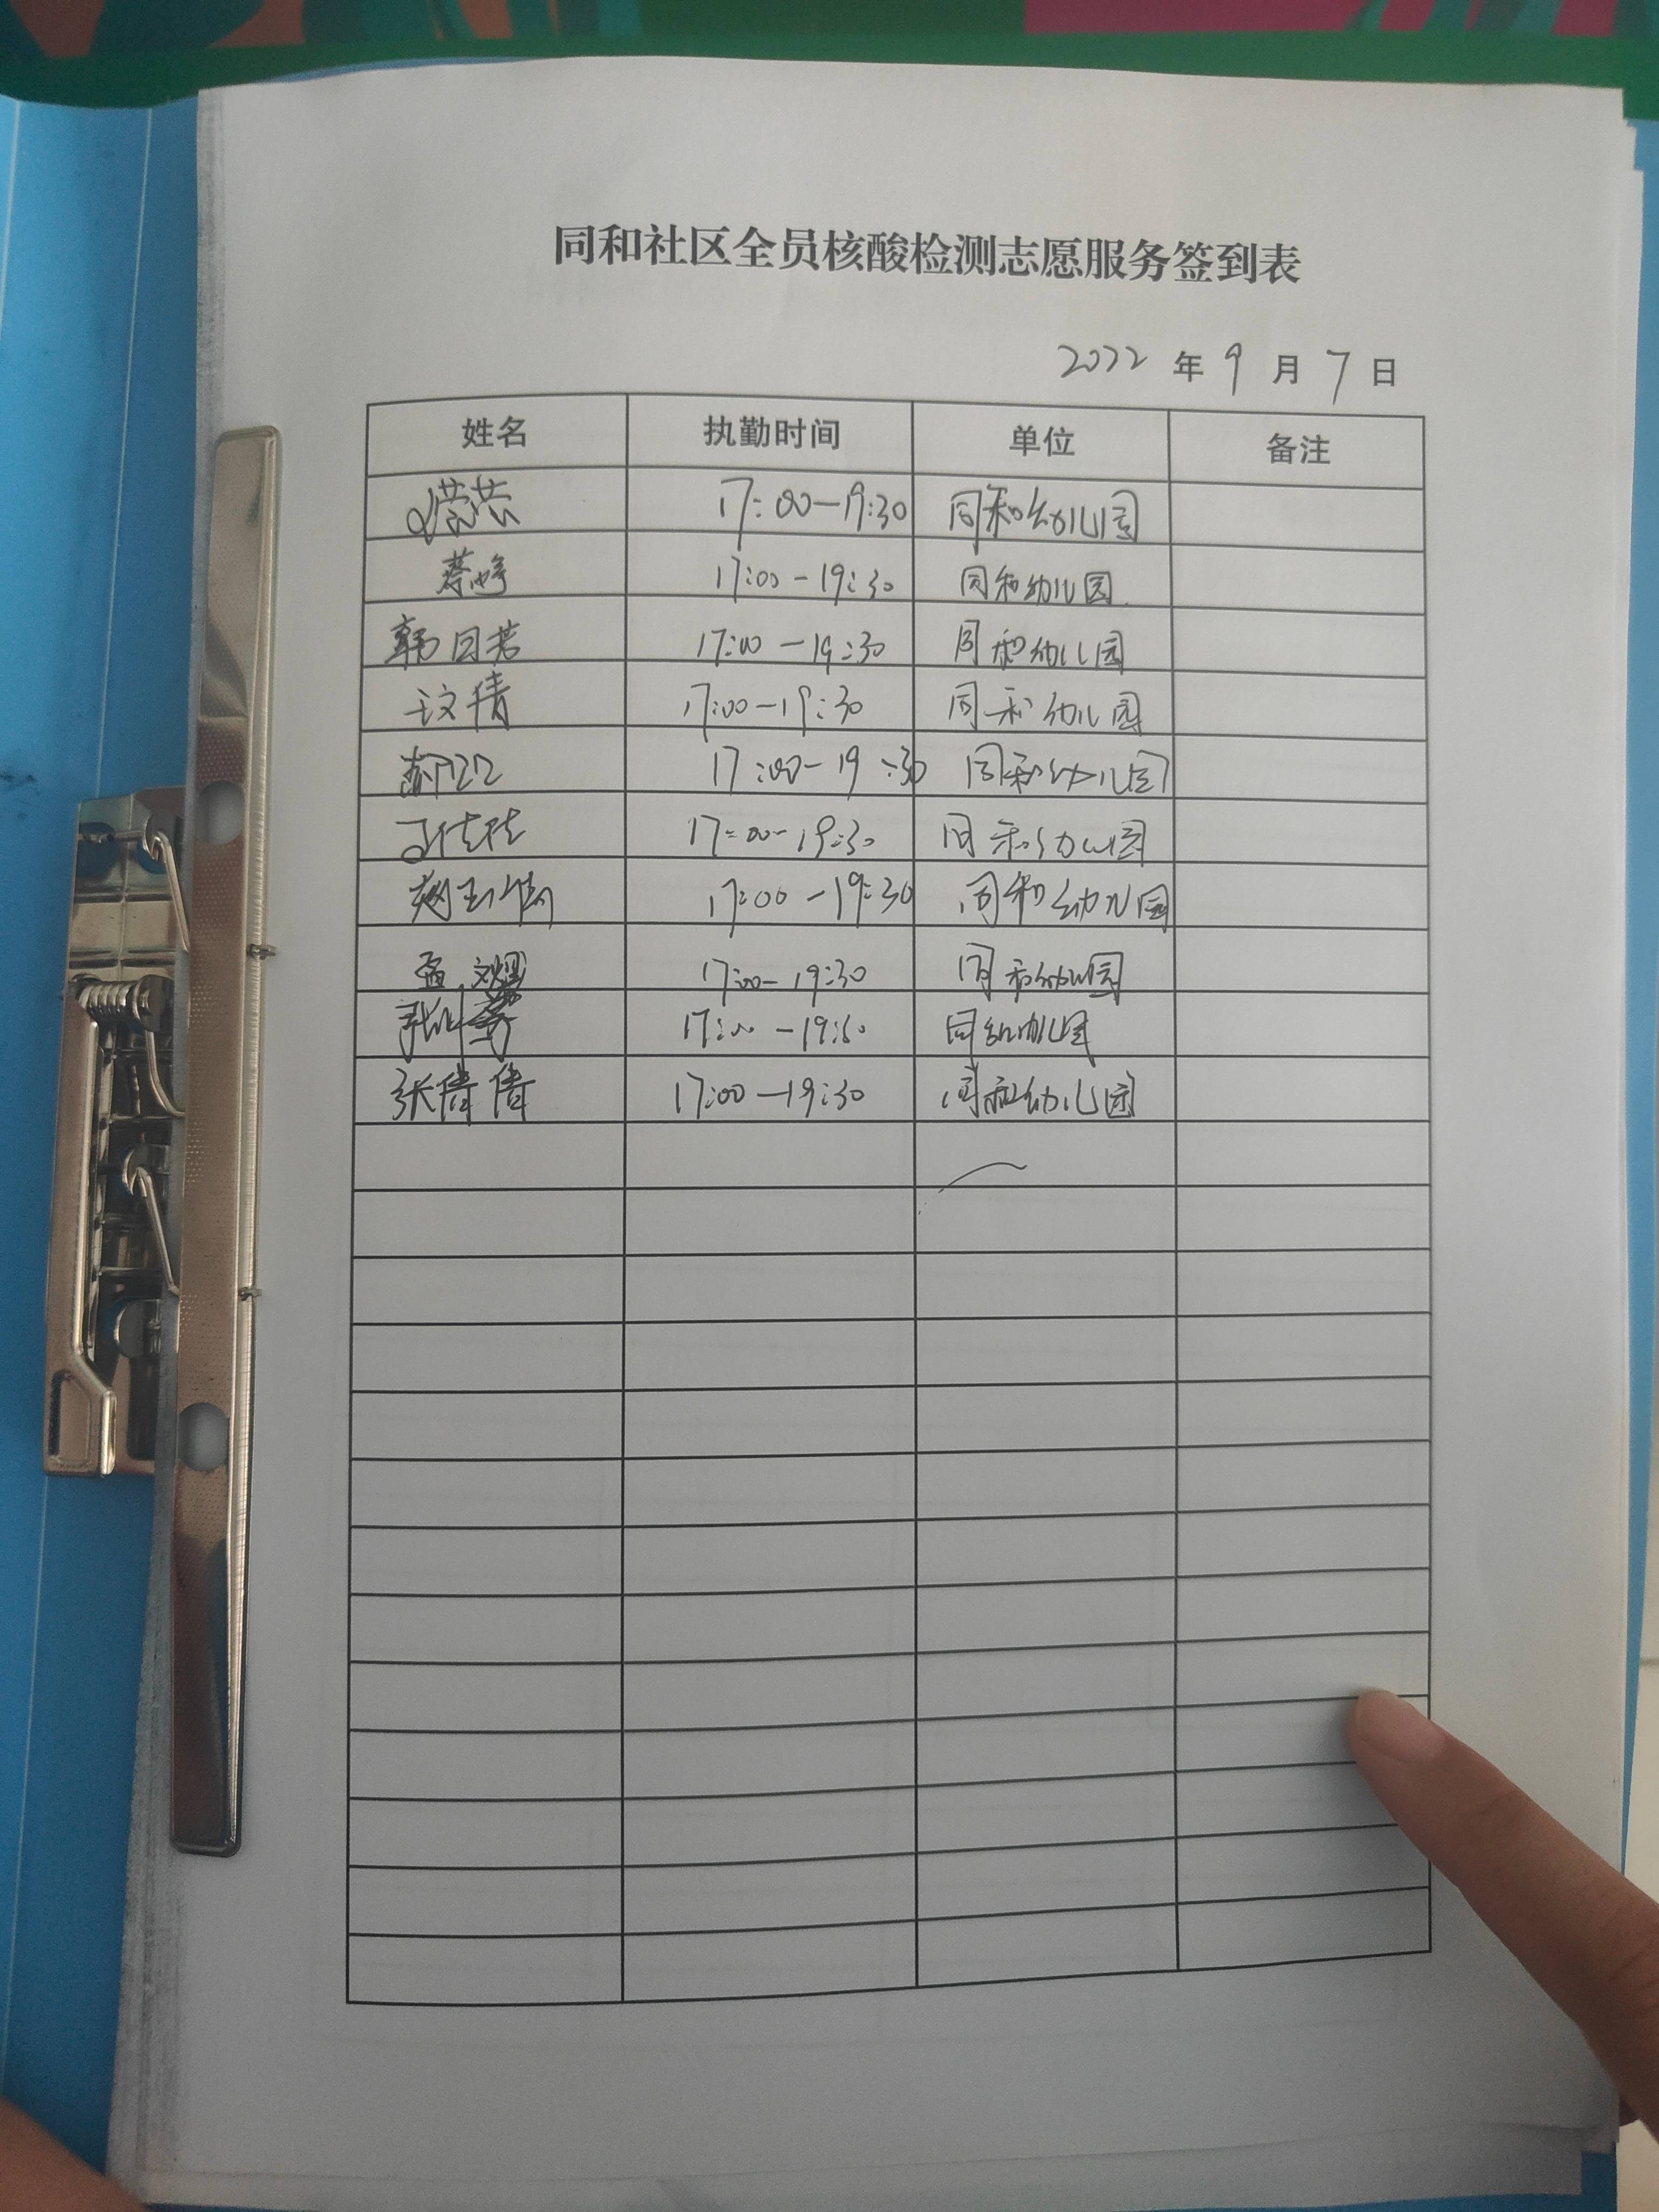 同和社区全员核酸检测志愿服务签到表
2022 年 9 月 7 日
姓名 执勤时间 单位 备注
17:00-19:30 同和幼儿园
蔡峰 17:00-19:30 同和幼儿园
韩日芳 17:00-19:30 同和幼儿园
王文倩 17:00-19:30 同和幼儿园
17:00-19:30 同和幼儿园
王佳佳 17:00-19:30 同和幼儿园
17:00-19:30 同和幼儿园
孟 17:00-19:30 同和幼儿园
17:00-19:30 同和幼儿园
张倩倩 17:00-19:30 同和幼儿园